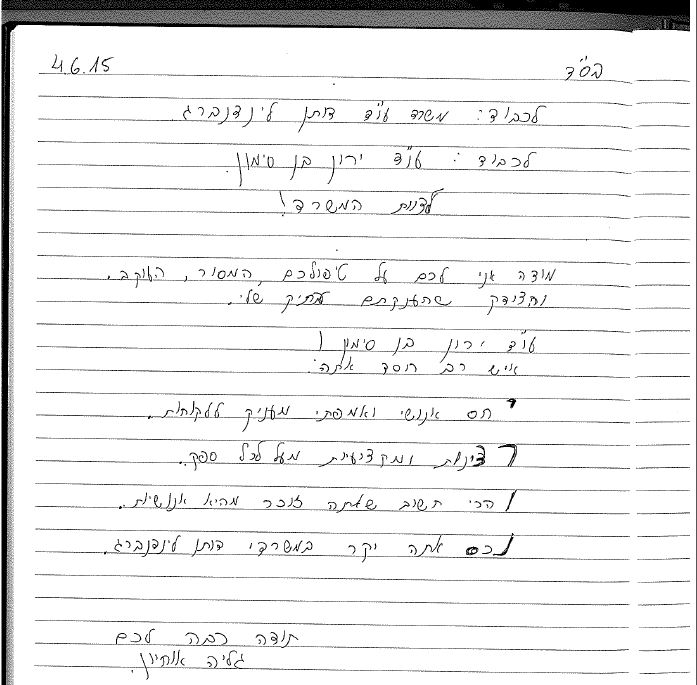 בס"ד
4.6.15
לכבוד: משרד עו"ד דותן לינדנברג
לכבוד: עו"ד ירון בן סימון.
לצוות המשרד!
מודה אני לכם על טיפולכם, המסור, העוקב.
והצודק שהענקתם לתיק שלי.
עו"ד ירון בן סימון!
איש רב חסד אתה:
י חס אנושי ואמפתי מעניק ללקוחות.
ר צינות ומקצועיות מעל לכל ספק.
ו הכי חשוב שאתה זוכר מהיא אנושיות.
נכס אתה יקר במשרדי דותן לינדנברג.
תודה רבה לכם
גליה אוחיון.